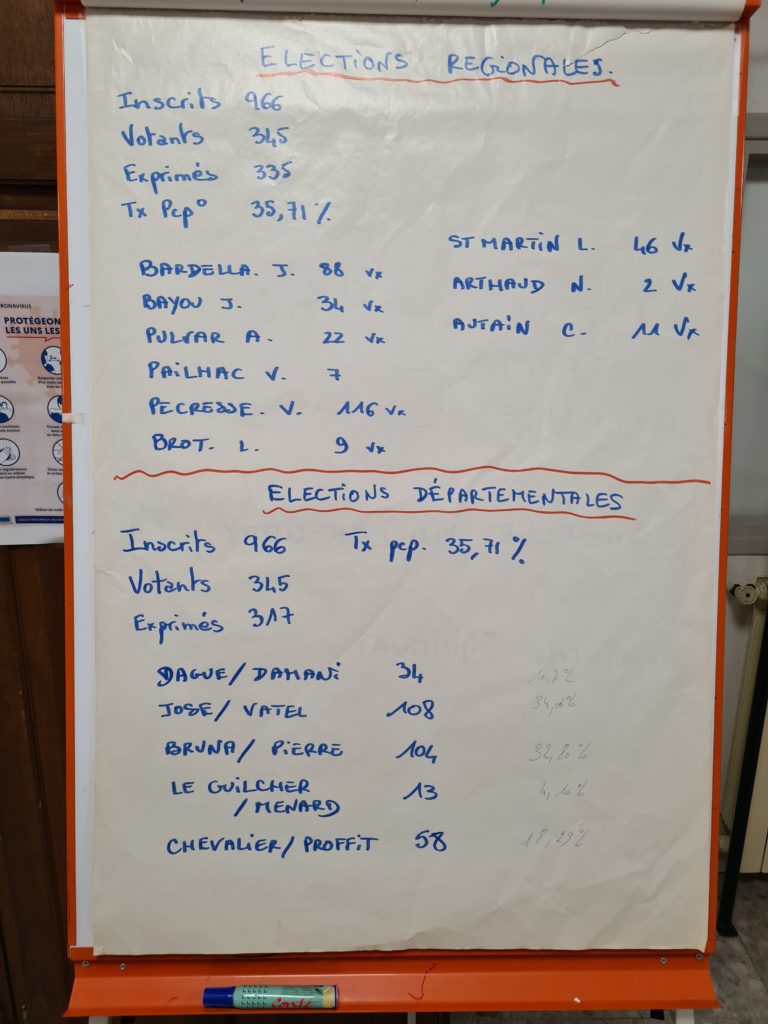 ELECTIONS REGIONALES.
Inscrits 966
Votants 345
Exprimés 335
Tx Pcp° 35,71 %
BARDELLA. J. 88 Vx
BAYOU J. 34 Vx
PULVAR A. 22 Vx
PAILHAC V. 7
PECRESSE. V. 116 Vx
BROT. L. 9 Vx
ST MARTIN L. 46 Vx
ARTHAUD N. 2 Vx
AUTAIN C. 11 Vx
ELECTIONS DÉPARTEMENTALES
Inscrits 966 Tx pcp. 35,71 %
Votants 345
Exprimés 317
DAGUE/DAMANI 34 10,7%
JOSE/VATEL 108 34,06%
BRUNA/PIERRE 104 32,80%
LE GUILCHER
/MENARD 13 4,10%
CHEVALIER/PROFFIT 58 18,29%
PROTÉGEON
LES UNS LES